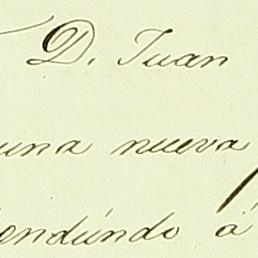 D. Juan
una nueva
endiendo á